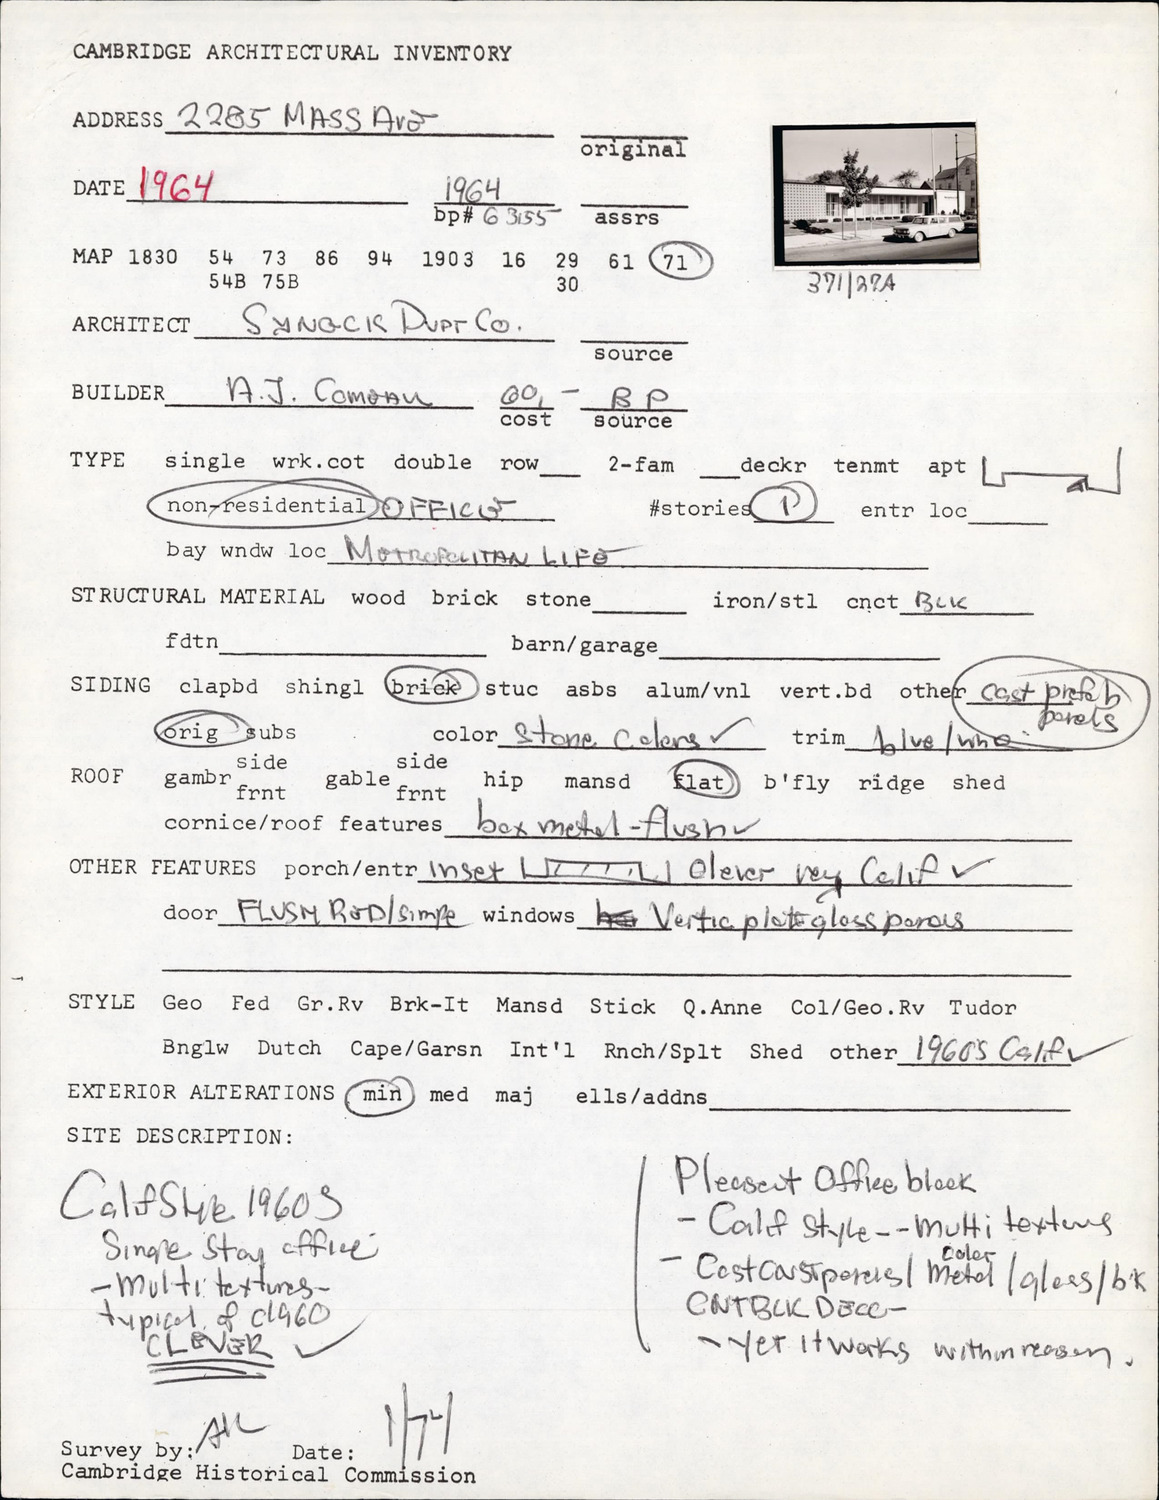 CAMBRIDGE ARCHITECTURAL INVENTORY
ADDRESS 2285 MASS AVE
original
DATE 1964 1964
bp# 63155 assrs
MAP 1830 54 73 86 94 1903 16 29 61 71
54B 75B 30
371/27A
ARCHITECT DVPT CO.
source
BUILDER A.J. COMEAU 60,- BP
cost source
TYPE single wrk.cot double row 2-fam deckr tenmt apt
non-residential OFFICE #stories 1 entr loc
bay wndw loc METROPOLITAN LIFE
STRUCTURAL MATERIAL wood brick stone iron/stl cnct BLK
fdtn barn/garage
SIDING clapbd shingl brick stuc asbs alum/vnl vert.bd other cast prefab
panels
orig subs color stone colors ✓ trim blue/
side side
ROOF gambr gable hip mansd flat b'fly ridge shed
frnt frnt
cornice/roof features box metal-flush ✓
OTHER FEATURES porch/entr inset Clever very Calif ✓
door FLUSH RED/simple windows Vertic plate glass panels
STYLE Geo Fed Gr.Rv Brk-It Mansd Stick Q.Anne Col/Geo.Rv Tudor
Bnglw Dutch Cape/Garsn Int'l Rnch/Splt Shed other 1960'S Calif ✓
EXTERIOR ALTERATIONS min med maj ells/addns
SITE DESCRIPTION:
Calif Style 1960S
Single Story office
-multi textures-
typical of c1960
CLEVER ✓
Pleasant Office block
- Calif style--multi textures
color
- Cast panels/metal/glass/bk
CNTBLK DECC-
- yet it works within reason.
Survey by: Date: 1/74
Cambridge Historical Commission